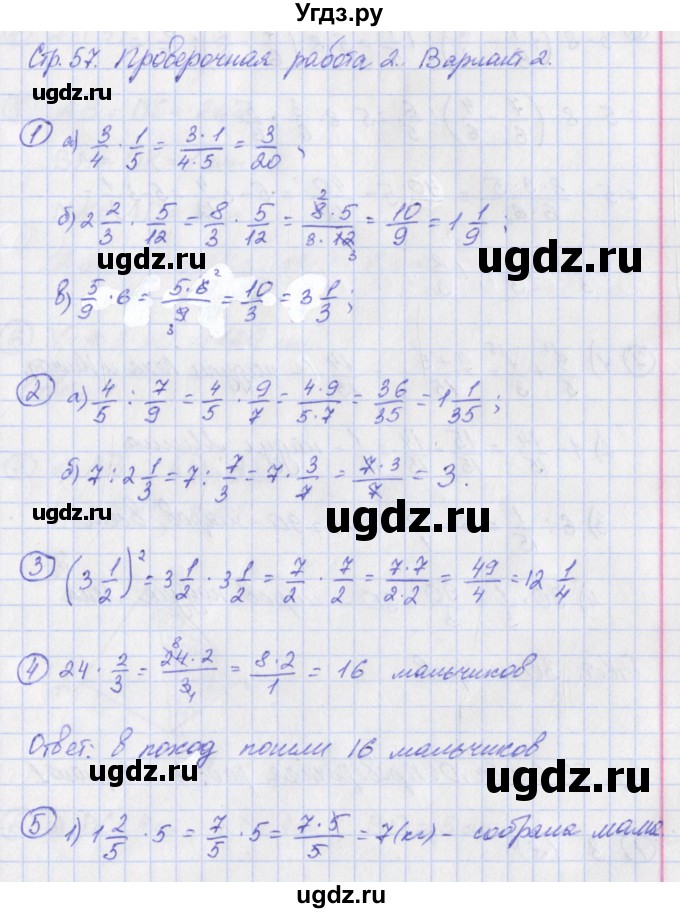 Угдз.ру
Стр. 57. Проверочная работа 2. Вариант 2.
ugdz.ru ugdz.ru
1 а) 3/4 · 1/5 = 3·1/4·5 = 3/20;
б) 2 2/3 · 5/12 = 8/3 · 5/12 = 8·5/3·12 = 10/9 = 1 1/9;
ugdz.ru ugdz.ru
в) 5/9 · 6 = 5·6/9 = 10/3 = 3 1/3;
2 а) 4/5 : 7/9 = 4/5 · 9/7 = 4·9/5·7 = 36/35 = 1 1/35;
ugdz.ru
б) 7 : 2 1/3 = 7 : 7/3 = 7 · 3/7 = 7·3/7 = 3.
ugdz.ru ugdz.ru
3 (3 1/2)² = 3 1/2 · 3 1/2 = 7/2 · 7/2 = 7·7/2·2 = 49/4 = 12 1/4
ugdz.ru
4 24 · 2/3 = 24·2/3 = 8·2/1 = 16 мальчиков
ugdz.ru
Ответ: в поход пошли 16 мальчиков
ugdz.ru ugdz.ru
5 1) 1 2/5 · 5 = 7/5 · 5 = 7·5/5 = 7 (кг) - собрала мама
ugdz.ru
ugdz.ru